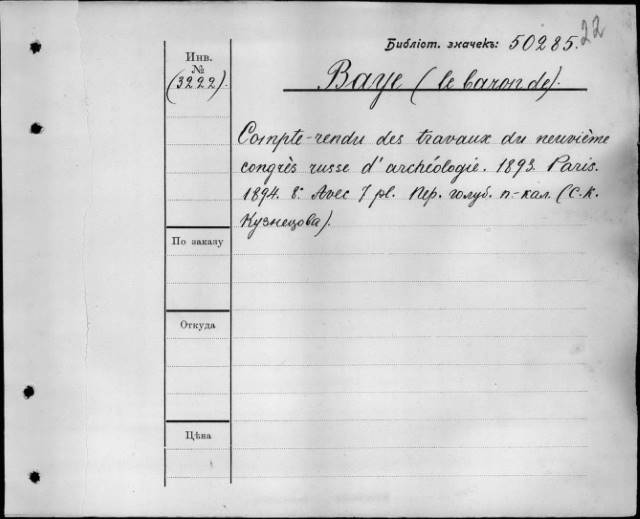 22
Библіот. значекъ: 50285.
Инв.
№
(3222).
Baye (le baron de).
Compte-rendu des travaux du neuvième
congrès russe d'archéologie. 1893. Paris.
1894. 8°. Avec 7 pl. Пер. голуб. п.-кал. (С. К.
Кузнецова).
По заказу
Откуда
Цѣна